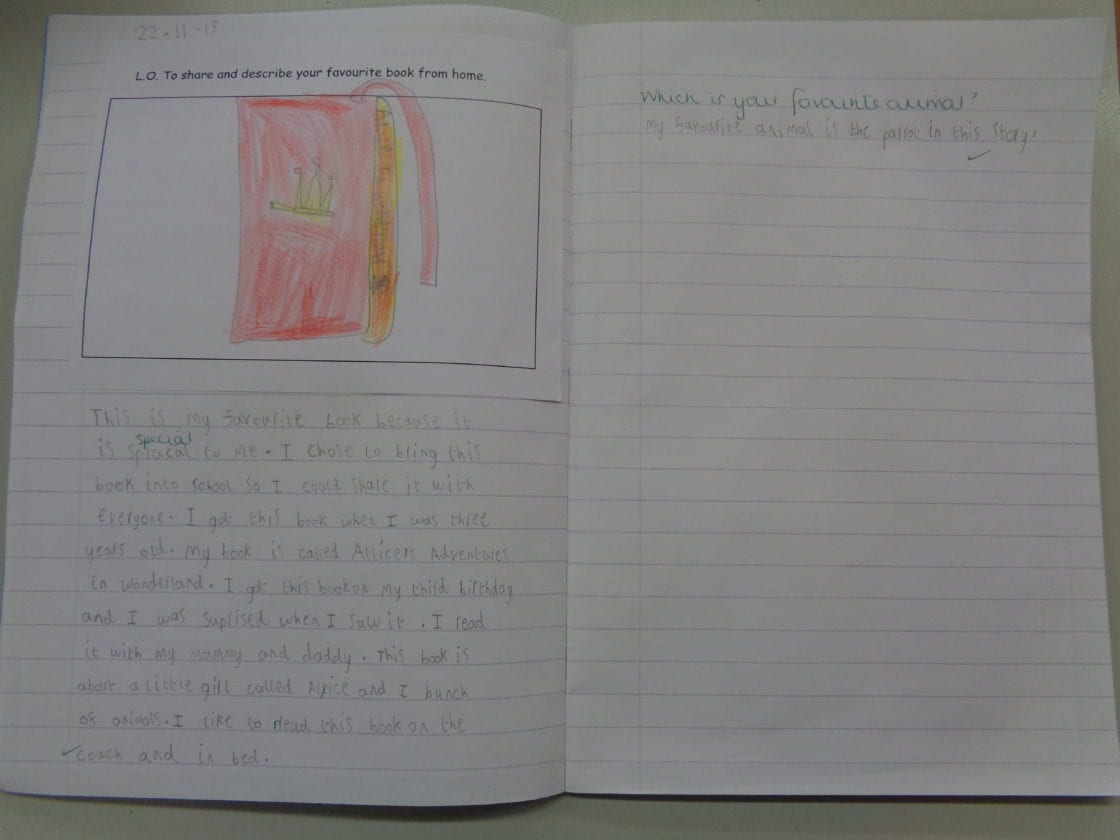 22.11.19
L.O. To share and describe your favourite book from home.
This is my favourite book because it
special
is spiacal to me. I chose to bring this
book into school so I could share it with
everyone. I got this book when I was three
years old. My book is called Allicers Adventures
in wonderland. I got this book on my third birthday
and I was suprised when I saw it. I read
it with my mammy and daddy. This book is
about a little girl called Alice and I bunch
of animals. I like to read this book on the
couch and in bed.
Which is your favourite animal?
My favourite animal is the parrot in this story.